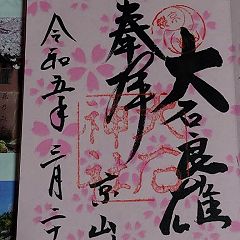 奉拝
大石良雄
大石神社
京山
令和五年三月二十